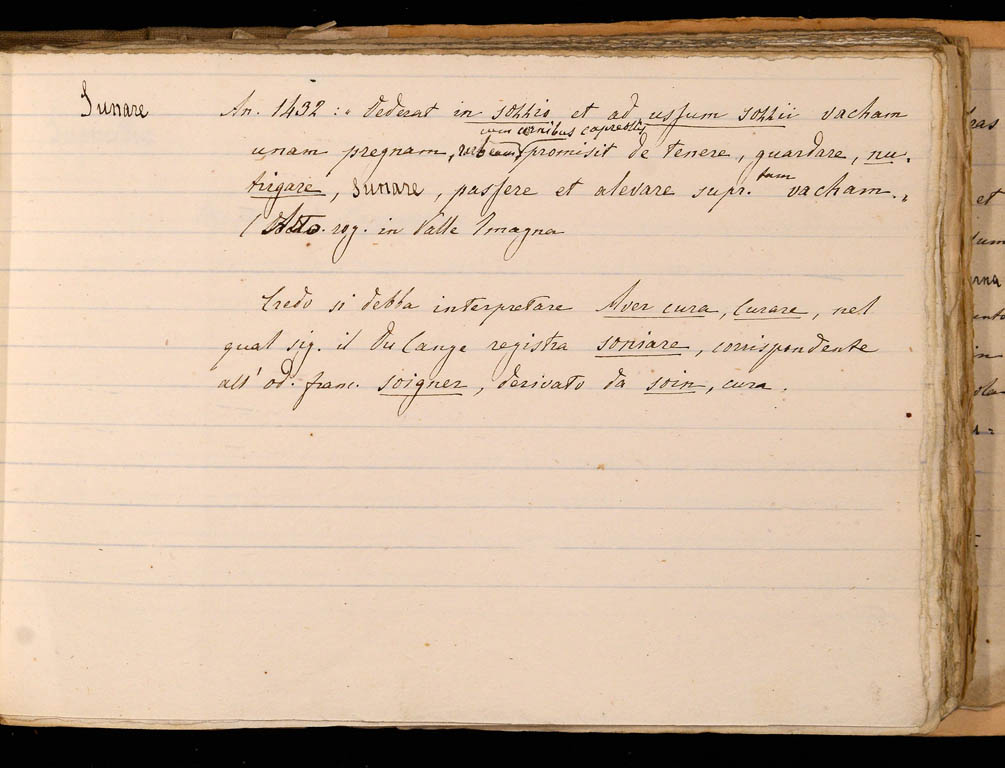 Sunare
An. 1432 : " Dederat in sozzio et ad ussum sozzii vacham
cum cornibus capreolis
unam pregnam, rubeam, promisit de tenere, guardare, nu-
trigare, sunare, passere et alevare supr.tam vacham. "
( Atto. rog. in Valle Imagna
Credo si debba interpretare Aver cura, Curare, nel
qual sig. il Du Cange registra soniare, corrispondente
all' od. franc. soigner, derivato da soin, cura.
ras
et
in